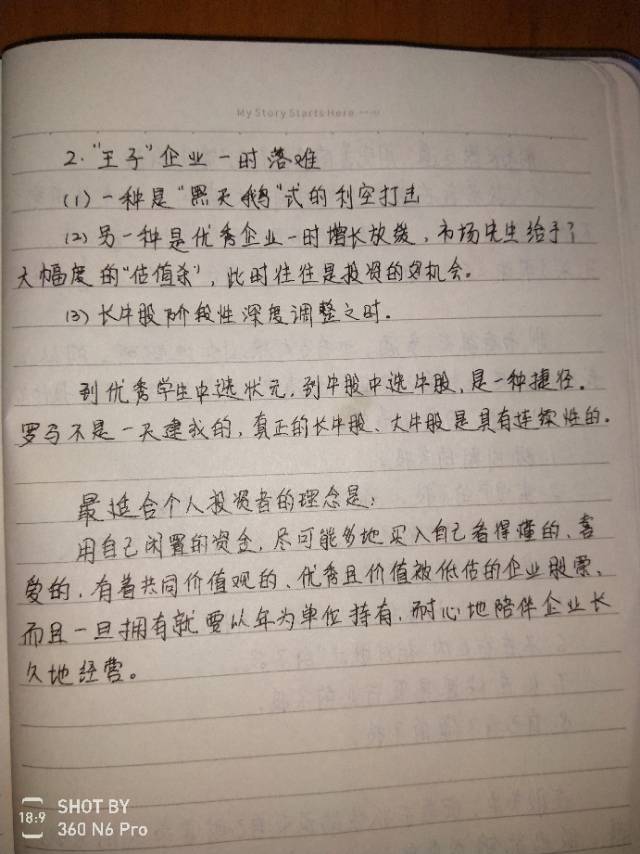 My Story Starts Here
2."王子"企业一时落难
(1)一种是"黑天鹅"式的利空打击
(2)另一种是优秀企业一时增长放缓,市场先生给予了
大幅度的"估值杀",此时往往是投资的好机会。
(3)长牛股阶段性深度调整之时.
到优秀学生中选状元,到牛股中选牛股,是一种捷径.
罗马不是一天建成的,真正的长牛股、大牛股是具有连续性的.
最适合个人投资者的理念是:
用自己闲置的资金,尽可能多地买入自己看得懂的、喜
爱的,有着共同价值观的、优秀且价值被低估的企业股票、
而且一旦拥有就要以年为单位持有,耐心地陪伴企业长
久地经营。
18:9
SHOT BY
360 N6 Pro